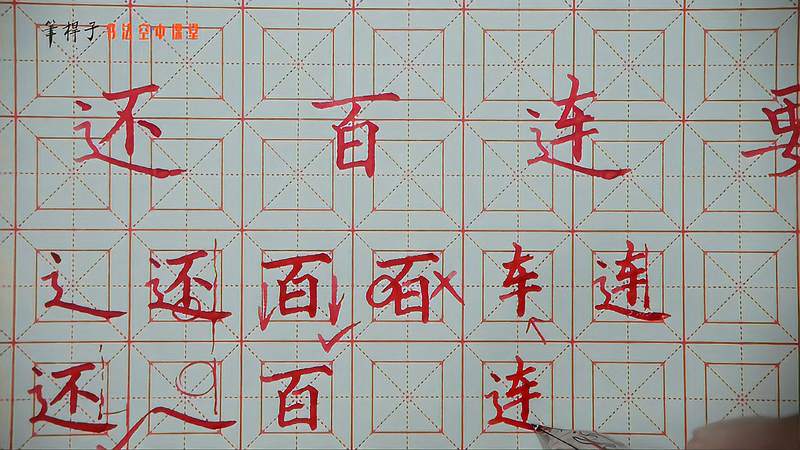 筆得子书法空中课堂
还 百 连 要
辶 还 百 百 车 连
还 ㇏ 百 连